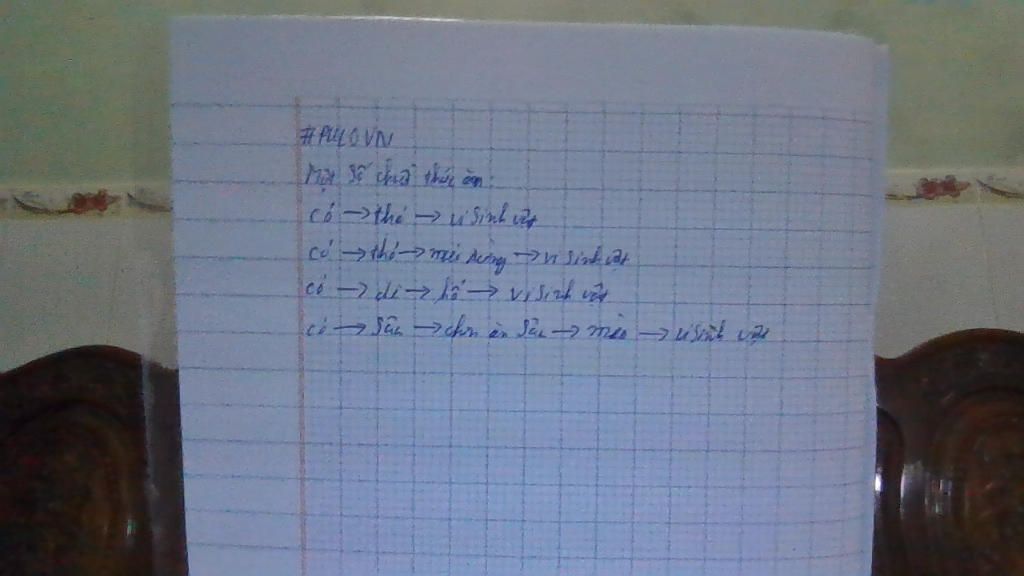 #PULOVN
Một số chuỗi thức ăn:
cỏ → thỏ → vi sinh vật
cỏ → thỏ → mèo rừng → vi sinh vật
cỏ → dê → hổ → vi sinh vật
cỏ → sâu → chim ăn sâu → mèo → vi sinh vật